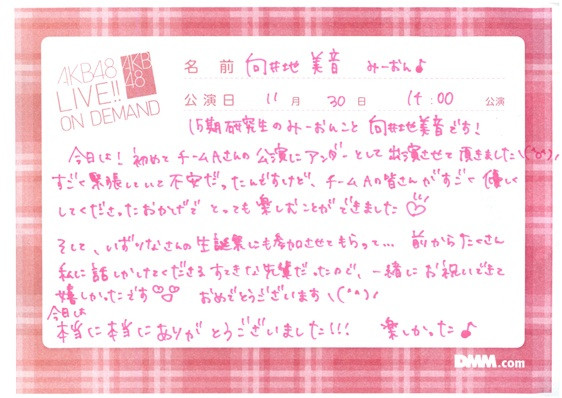 AKB48
LIVE!!
ON DEMAND
AKB
48
名 前 向井地 美音 みーおん♪
公演日 11 月 30 日 14:00 公演
15期研究生のみーおんこと 向井地美音です!
今日は!初めて チームAさんの 公演にアンダーとして 出演させて頂きました\(^o^)/
すごく緊張していて不安だったんですけど、チームAの皆さんがすごく 優しく
してくださったおかげで とっても楽しむことができました♡
そして、いずりなさんの生誕祭にも参加させてもらって... 前からたくさん
私に話しかけてくださるすてきな先輩だったので、一緒にお祝いできて
嬉しかったです♡♡ おめでとうございます\(^^)/
今日は
本当に本当にありがとうございました!!! 楽しかった♪
DMM.com